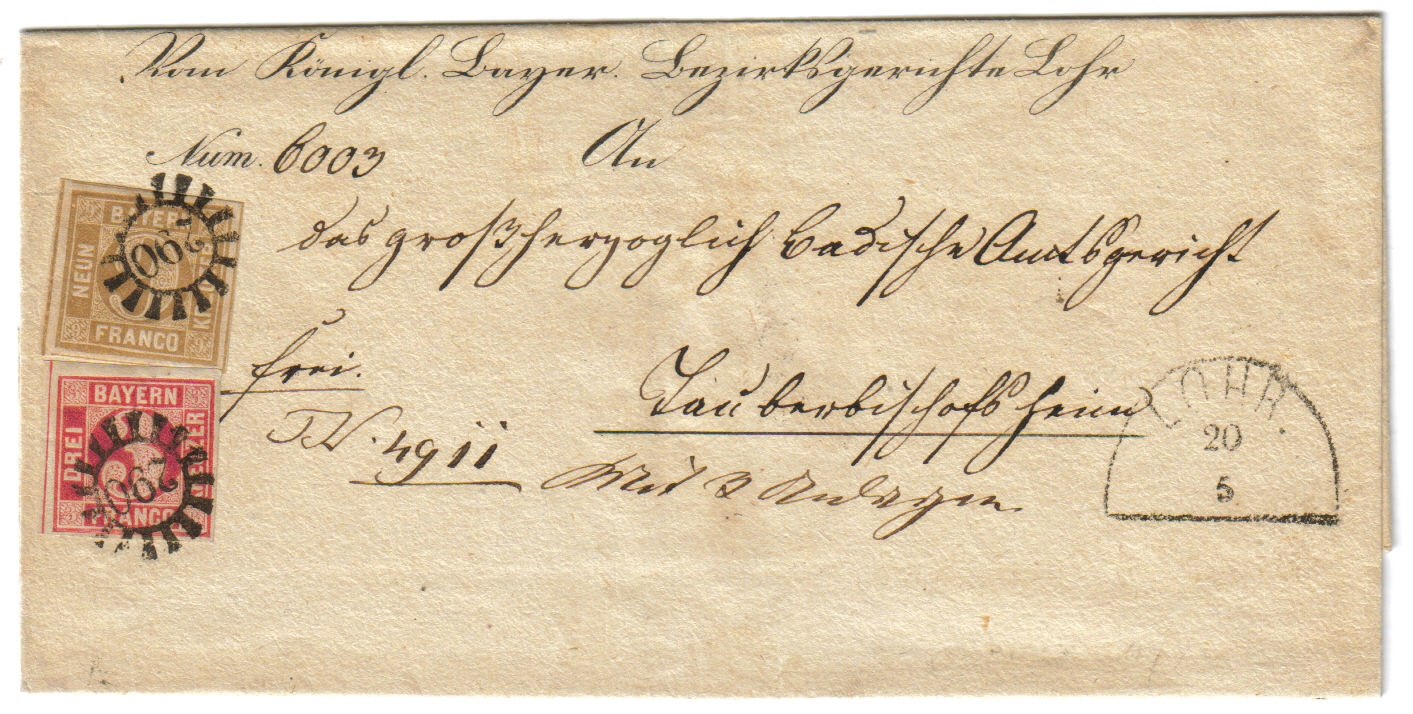 Vom Königl. Bayer. Bezirksgerichte Lohr
Num. 6003
An
das großherzoglich badische Amtsgericht
frei.
Tauberbischofsheim
4911
Mit 3 Anlagen
BAYERN
NEUN
FRANCO
290
BAYERN
DREI
KREUZER
FRANCO
290
LOHR.
20
5